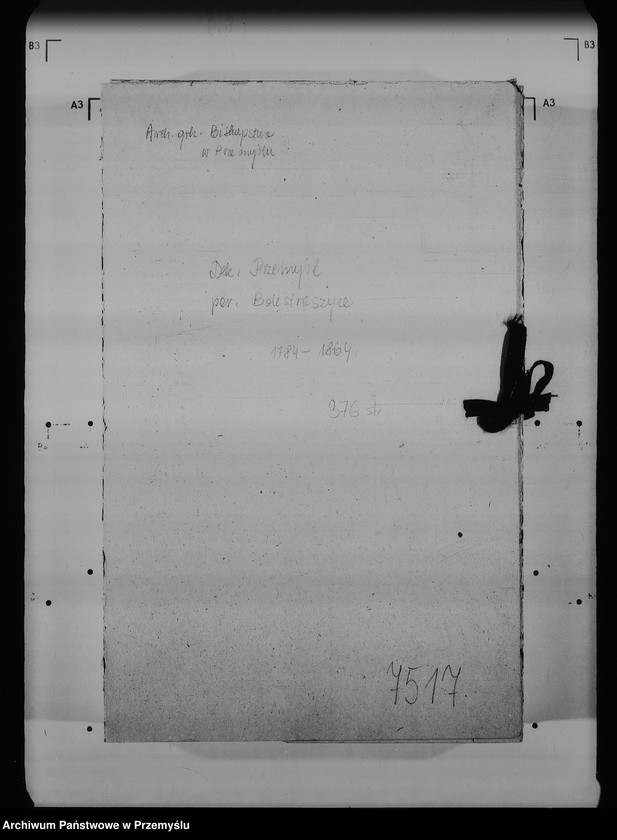 B3
B3
A3
A3
Arch. grk. Biskupstwa
w Przemyślu
Dek. Przemyśl
par. Bolestraszyce
1784 - 1864
376 str.
7517
Archiwum Państwowe w Przemyślu